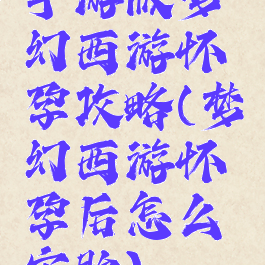 手游版梦
幻西游怀
孕攻略(梦
幻西游怀
孕后怎么